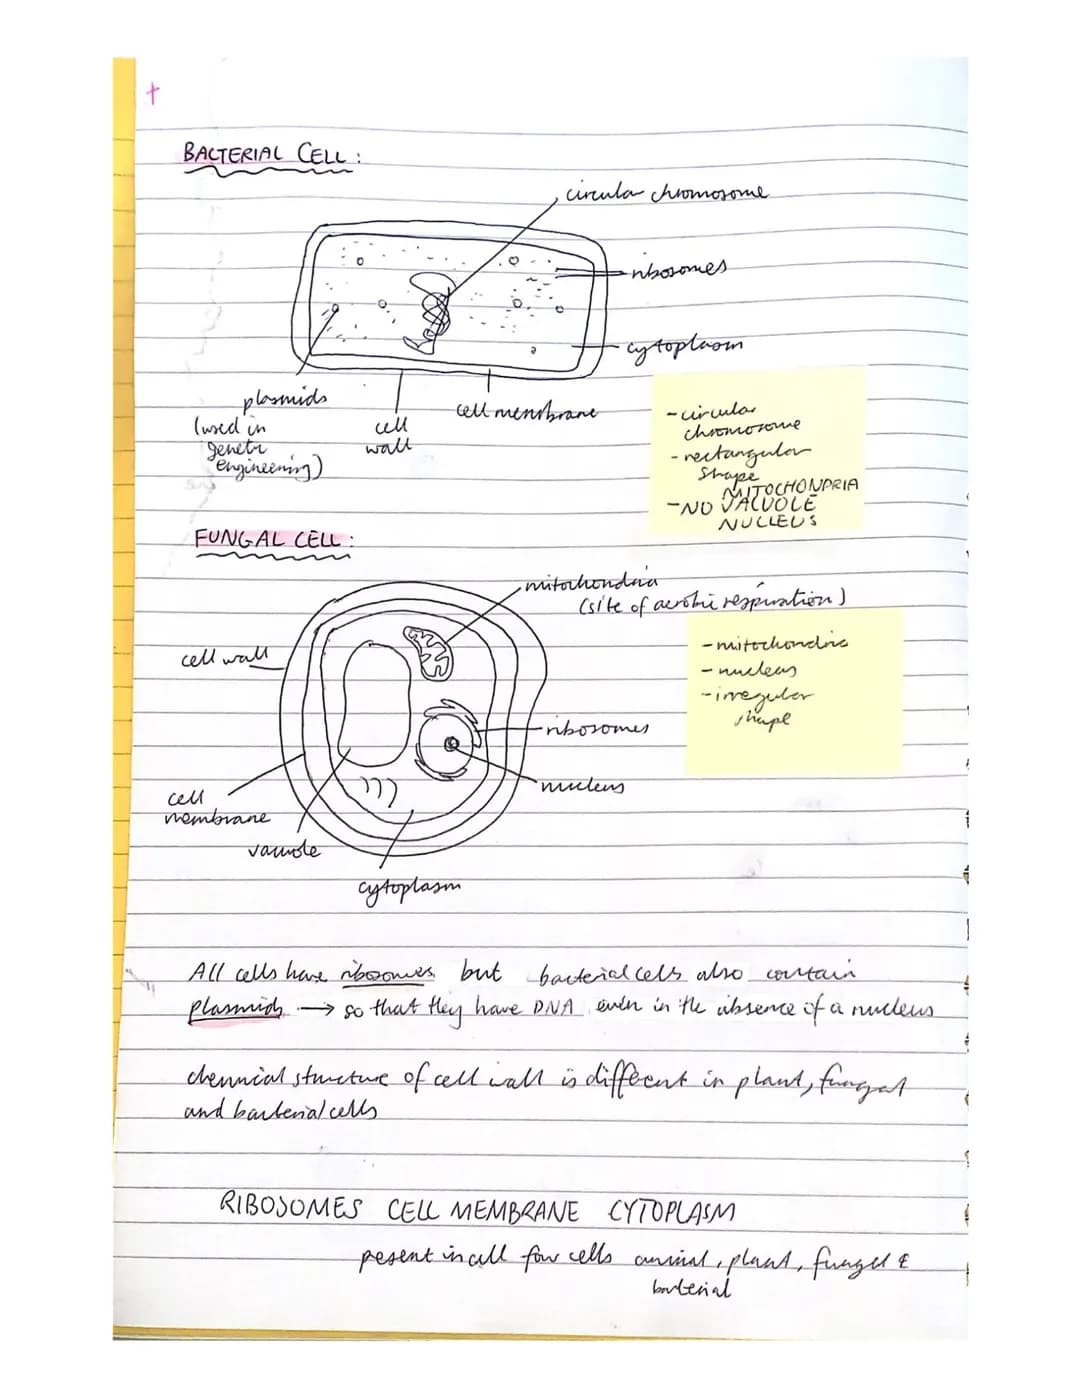 BACTERIAL CELL :
circular chromosome
ribosomes
cytoplasm
plasmids
(used in
genetic
engineering)
cell
wall
cell membrane
- circular
chromosome
- rectangular
shape
MITOCHONDRIA
- NO VACUOLE
NUCLEUS
FUNGAL CELL :
mitochondria
(site of aerobic respiration)
cell wall
- mitochondria
- nucleus
- irregular
shape
ribosomes
nucleus
cell
membrane
vacuole
cytoplasm
All cells have ribosomes but bacterial cells also contain
plasmids → so that they have DNA even in the absence of a nucleus
chemical structure of cell wall is different in plant, fungal
and bacterial cells
RIBOSOMES CELL MEMBRANE CYTOPLASM
present in all four cells animal, plant, fungal &
bacterial